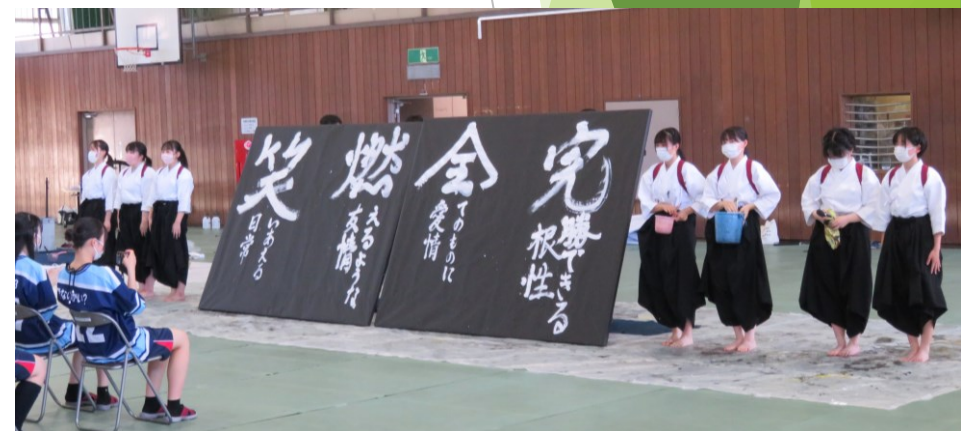 完勝できる
根性
全てのものに
愛情
燃えるような
友情
笑いあえる
日常